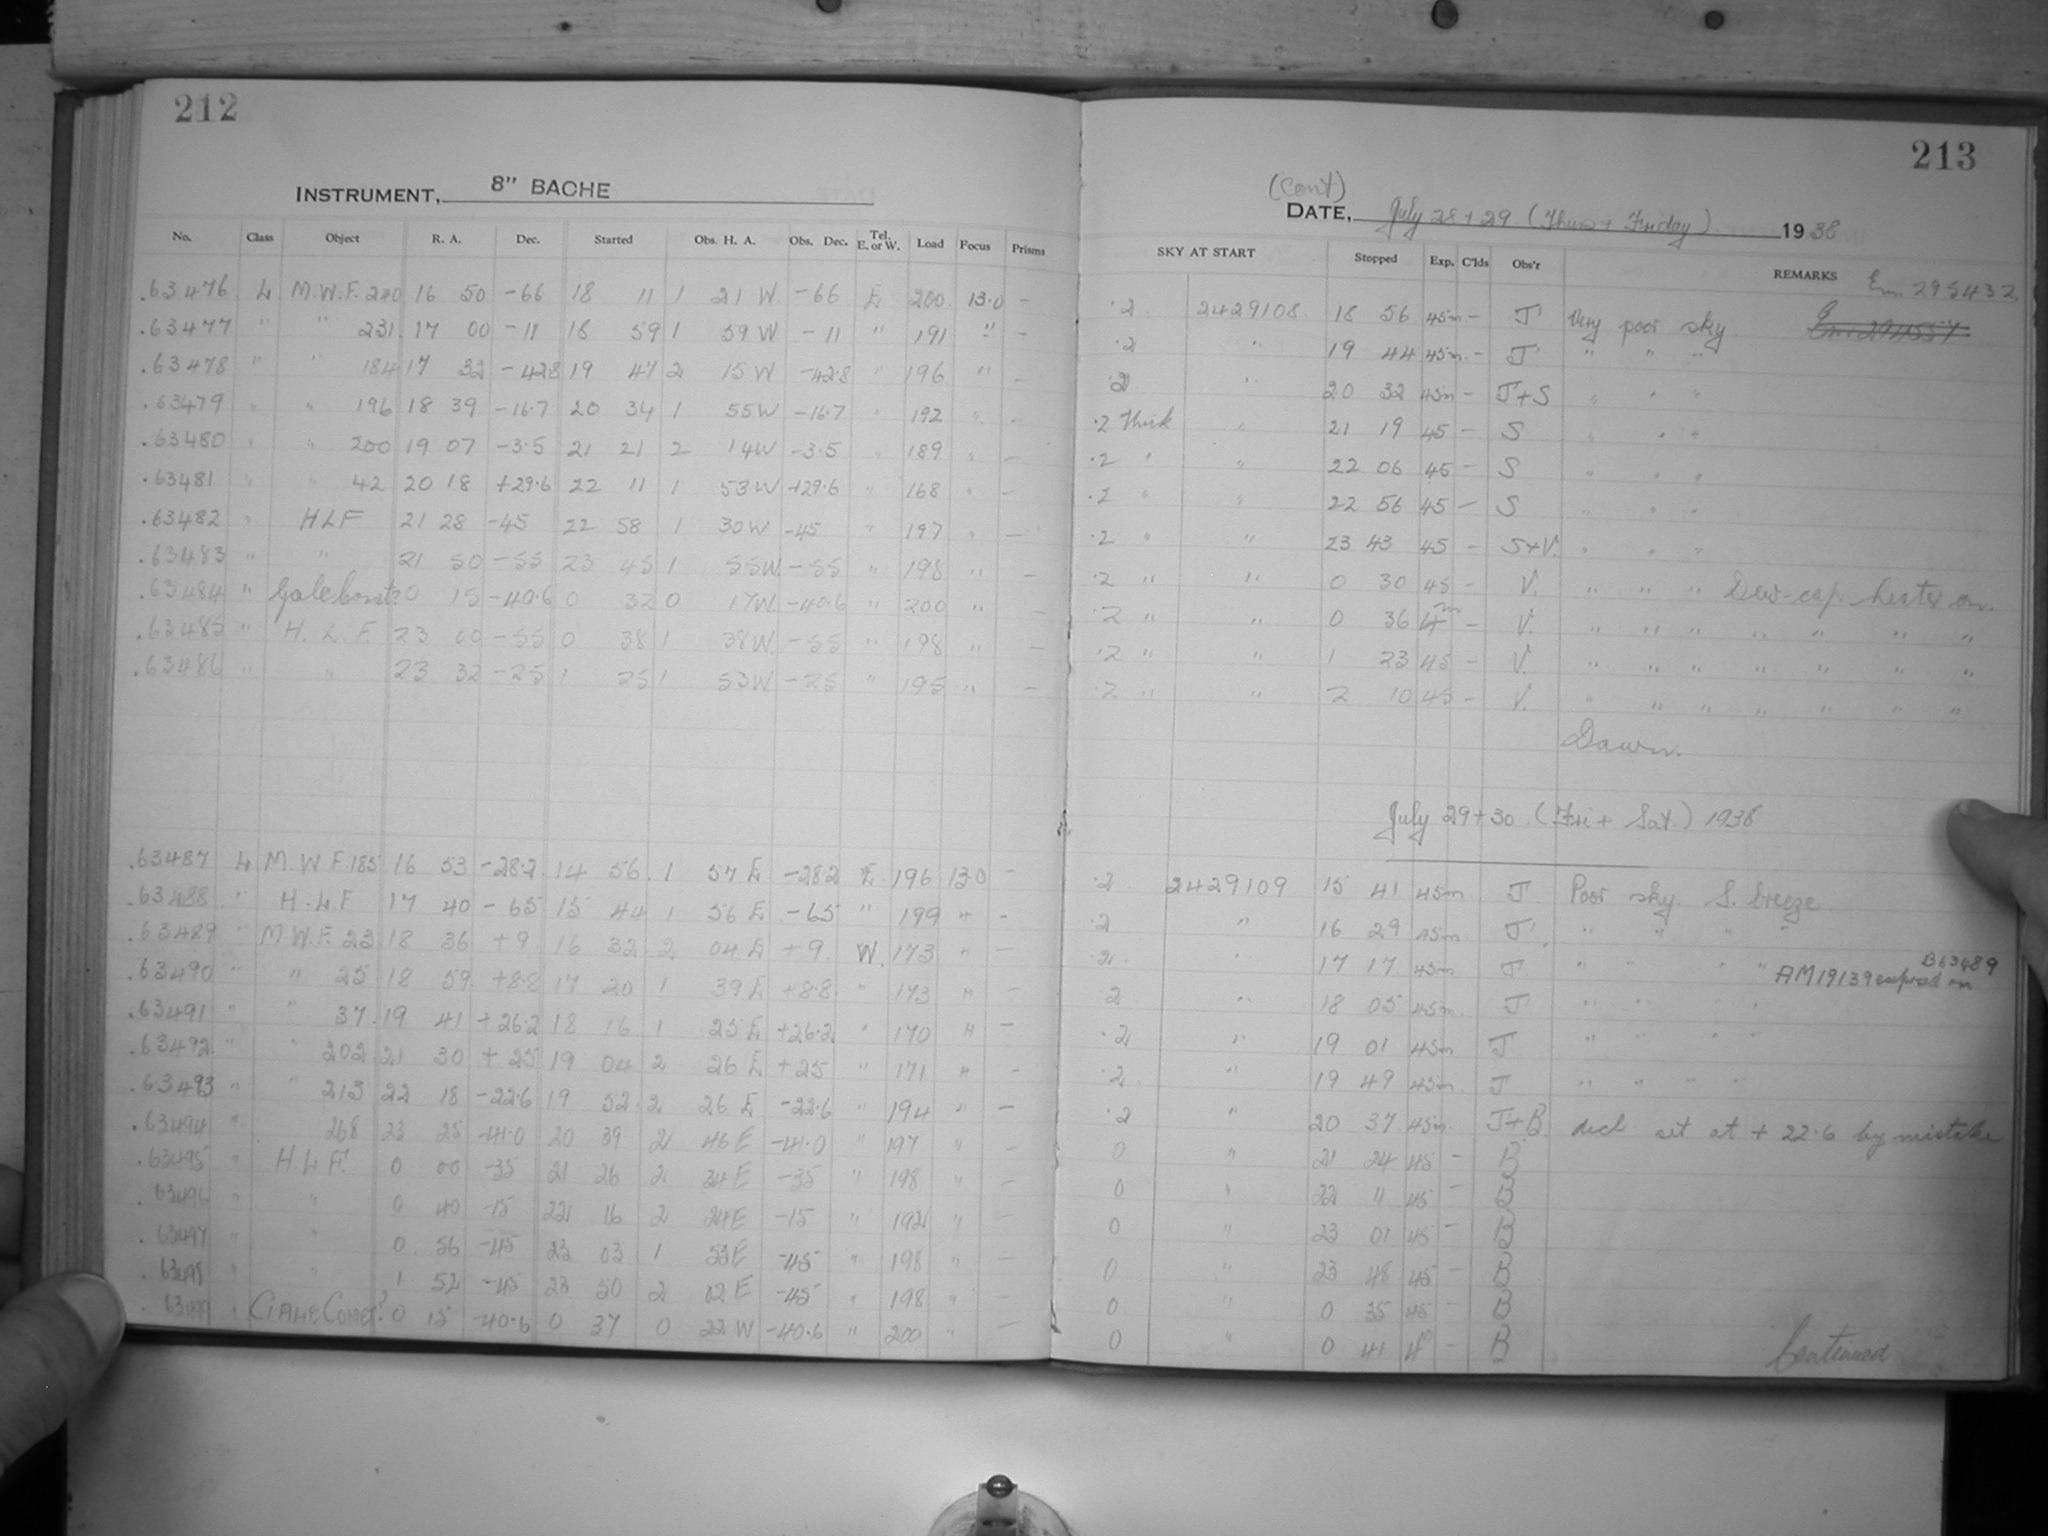 212
INSTRUMENT, 8" BACHE
No. Class Object R. A. Dec. Started Obs. H. A. Obs. Dec. Tel. E. or W. Load Focus Prisms
.63476 L M.W.F. 240 16 50 -66 18 11 1 21 W -66 E 200 13.0 -
.63477 " " 231 17 00 -11 18 59 1 59 W -11 " 191 " -
.63478 " " 184 17 32 -42.8 19 47 2 15 W -42.8 " 196 " -
.63479 " " 196 18 39 -16.7 20 34 1 55 W -16.7 " 192 " -
.63480 " " 200 19 07 -3.5 21 21 2 14 W -3.5 " 189 " -
.63481 " " 42 20 18 +29.6 22 11 1 53 W +29.6 " 168 " -
.63482 " HLF 21 28 -45 22 58 1 30 W -45 " 197 " -
.63483 " " 21 50 -55 23 45 1 55 W. -55 " 198 " -
.63484 " Gale Comet? 0 15 -40.6 0 32 0 17 W. -40.6 " 200 " -
.63485 " H. L. F. 23 00 -55 0 38 1 38 W. -55 " 198 " -
.63486 " " 23 32 -25 1 25 1 53 W -25 " 195 " -
.63487 L M.W.F. 185 16 53 -28.2 14 56 1 57 E -28.2 E 196 13.0 -
.63488 " H.L.F 17 40 -65 15 44 1 56 E -65 " 199 " -
.63489 " M.W.F. 23 18 36 +9 16 32 2 04 E +9 W. 173 " -
.63490 " " 25 18 59 +8.8 17 20 1 39 E +8.8 " 173 " -
.63491 " " 37 19 41 +26.2 18 16 1 25 E +26.2 " 170 " -
.63492 " " 202 21 30 +25 19 04 2 26 E +25 " 171 " -
.63493 " " 213 22 18 -22.6 19 52 2 26 E -22.6 " 194 " -
.63494 " 268 23 25 -41.0 20 39 2 46 E -41.0 " 197 " -
.63495 " H.L.F. 0 00 -35 21 26 2 34 E -35 " 198 " -
.63496 " " 0 40 -15 22 16 2 24 E -15 " 192 " -
.63497 " " 0 56 -45 23 03 1 53 E -45 " 198 " -
.63498 " " 1 52 -45 23 50 2 02 E -45 " 198 " -
.63499 " GALE Comet? 0 15 -40.6 0 37 0 22 W -40.6 " 200 " -
213
(Cont)
DATE, July 28 + 29 (Thurs + Friday) 1938
SKY AT START Stopped Exp. C'lds Obs'r REMARKS
Em. 295432
.2 2429108 18 56 45m - J Very poor sky
.2 " 19 44 45m - J " " "
.2 " 20 32 45m - J+S " " "
.2 Thick " 21 19 45 - S " " "
.2 " " 22 06 45 - S " " "
.2 " " 22 56 45 - S " " "
.2 " " 23 43 45 - S+V. " " "
.2 " " 0 30 45 - V. " " " Dew-cap heater on.
.2 " " 0 36 4m - V. " " " " " " "
.2 " " 1 23 45 - V. " " " " " " "
.2 " " 2 10 45 - V. " " " " " " "
Dawn.
July 29 + 30. (Fri + Sat.) 1938
.2 2429109 15 41 45m J Poor sky. S. breeze
.2 " 16 29 45m J " " " "
.2 " 17 17 45m J " " " " B63489
AM19139 exposed on
.2 " 18 05 45m J " " " "
.2 " 19 01 45m J " " " "
.2 " 19 49 45m J " " " "
.2 " 20 37 45m J+B decl set at +22.6 by mistake
0 " 21 24 45 - B
0 " 22 11 45 - B
0 " 23 01 45 - B
0 " 23 48 45 - B
0 " 0 35 45 - B
0 " 0 41 4 - B
Continued